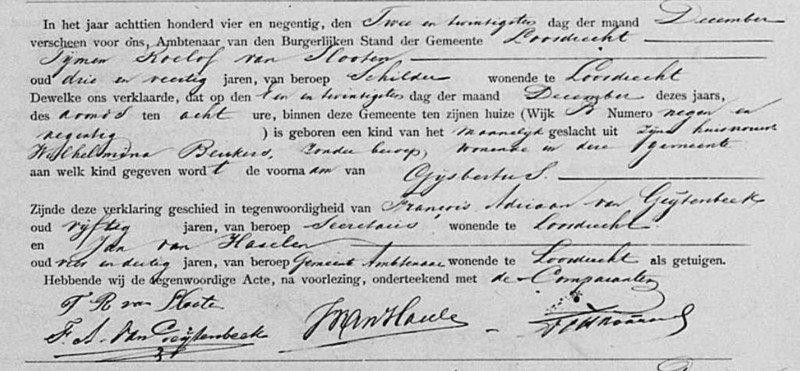 In het jaar achttien honderd vier en negentig, den Twee en twintigste dag der maand December
verscheen voor ons, Ambtenaar van den Burgerlijken Stand der Gemeente Loosdrecht
Tijmen Roelof van Slooten
oud drie en veertig jaren, van beroep Schilder wonende te Loosdrecht
Dewelke ons verklaarde, dat op den Een en twintigsten dag der maand December dezes jaars,
des avonds ten acht ure, binnen deze Gemeente ten zijnen huize (Wijk B Numero negen en
negentig ) is geboren een kind van het mannelijk geslacht uit zijne huisvrouw
Wilhelmina Beukers, zonder beroep, wonende in deze gemeente
aan welk kind gegeven wordt de voornaam van Gijsbertus.
Zijnde deze verklaring geschied in tegenwoordigheid van François Adriaan van Geijtenbeek
oud vijftig jaren, van beroep Secretaris, wonende te Loosdrecht
en Jan van Haselen
oud vier en dertig jaren, van beroep Gemeente Ambtenaar wonende te Loosdrecht als getuigen.
Hebbende wij de tegenwoordige Acte, na voorlezing, onderteekend met de Comparanten
T R van Slooten
F. A. van Geijtenbeek